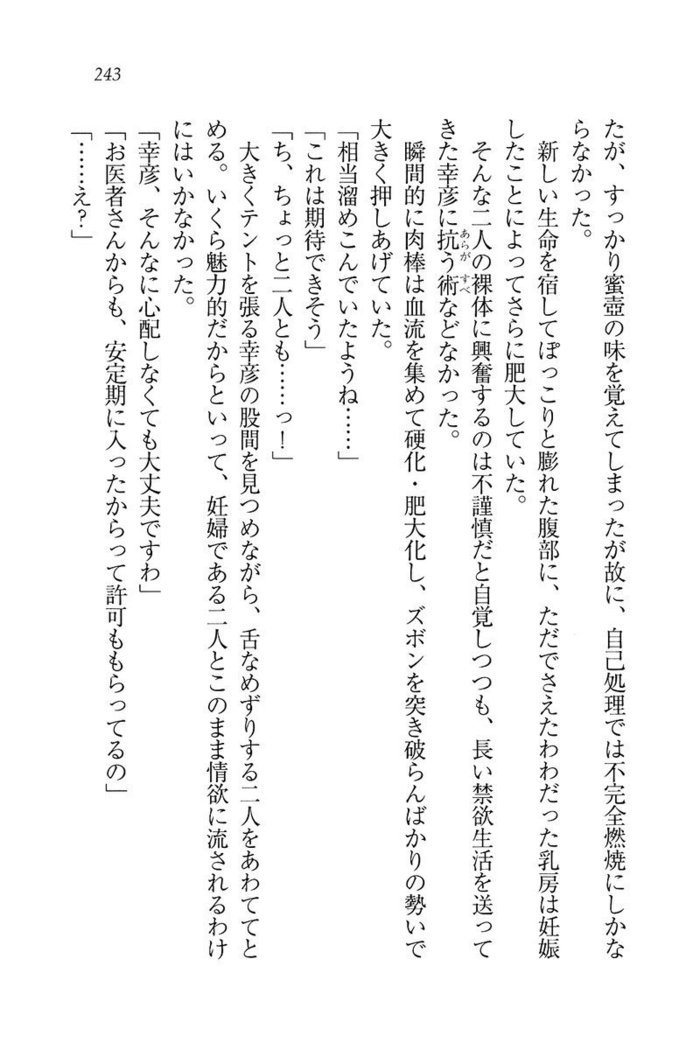 243
たが、すっかり蜜壺の味を覚えてしまったが故に、自己処理では不完全燃焼にしかな
らなかった。
新しい生命を宿してぽっこりと膨れた腹部に、ただでさえたわわだった乳房は妊娠
したことによってさらに肥大していた。
そんな二人の裸体に興奮するのは不謹慎だと自覚しつつも、長い禁欲生活を送って
きた幸彦に抗う術などなかった。
あらが すべ
瞬間的に肉棒は血流を集めて硬化・肥大化し、ズボンを突き破らんばかりの勢いで
大きく押しあげていた。
「相当溜めこんでいたようね……」
「これは期待できそう」
「ち、ちょっと二人とも……っ！」
大きくテントを張る幸彦の股間を見つめながら、舌なめずりする二人をあわててと
める。いくら魅力的だからといって、妊婦である二人とこのまま情欲に流されるわけ
にはいかなかった。
「幸彦、そんなに心配しなくても大丈夫ですわ」
「お医者さんからも、安定期に入ったからって許可ももらってるの」
「……え？」